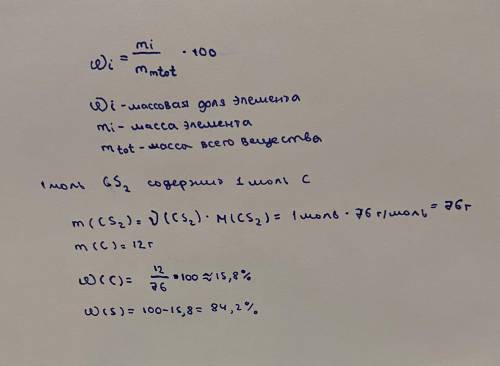 ωi = mi / mmtot · 100
ωi - массовая доля элемента
mi - масса элемента
mtot - масса всего вещества
1 моль CS₂ содержит 1 моль C
m(CS₂) = ν(CS₂) · M(CS₂) = 1 моль · 76 г/моль = 76 г
m(C) = 12 г
ω(C) = 12 / 76 · 100 ≈ 15,8%
ω(S) = 100 - 15,8 = 84,2%